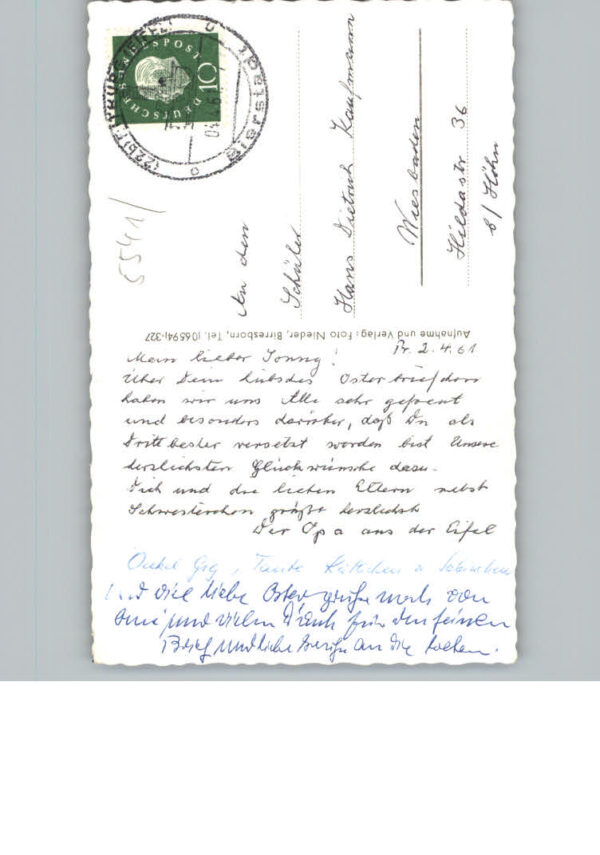 DEUTSCHE BUNDESPOST
10
(22b)
5541/
An den
Schüler
Hans Dietrich Kaufmann
Wiesbaden
Hildastr 36
b/ Höhn
Aufnahme und Verlag: Foto Nieder, Birresborn, Tel. (06594)-327
Pr. 2.4.61
Mein lieber Jonny!
Über Dein liebes Osterbriefchen
haben wir uns Alle sehr gefreut
und besonders darüber, daß Du als
Drittbester versetzt worden bist Unsere
herzlichsten Glückwünsche dazu.
Dich und die lieben Eltern nebst
Schwesterchen grüßt herzlichst
Der Opa aus der Eifel
Onkel Tante Käthchen u
viele liebe Ostergrüße noch von
und vielen Dank für den feinen
Brief und liebe an die